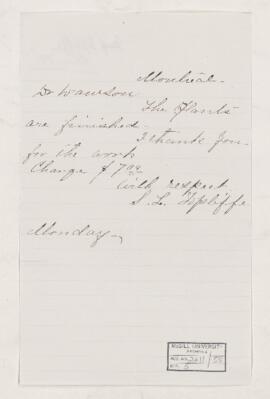 Montreal -
Dr Dawson
The Plants
are finished -
I thank you -
for the work
Charge $ 7.00
With respect
S. L.
Monday -
McGILL UNIVERSITY
ARCHIVES
ACC. NO. 2211/55
REF. 5